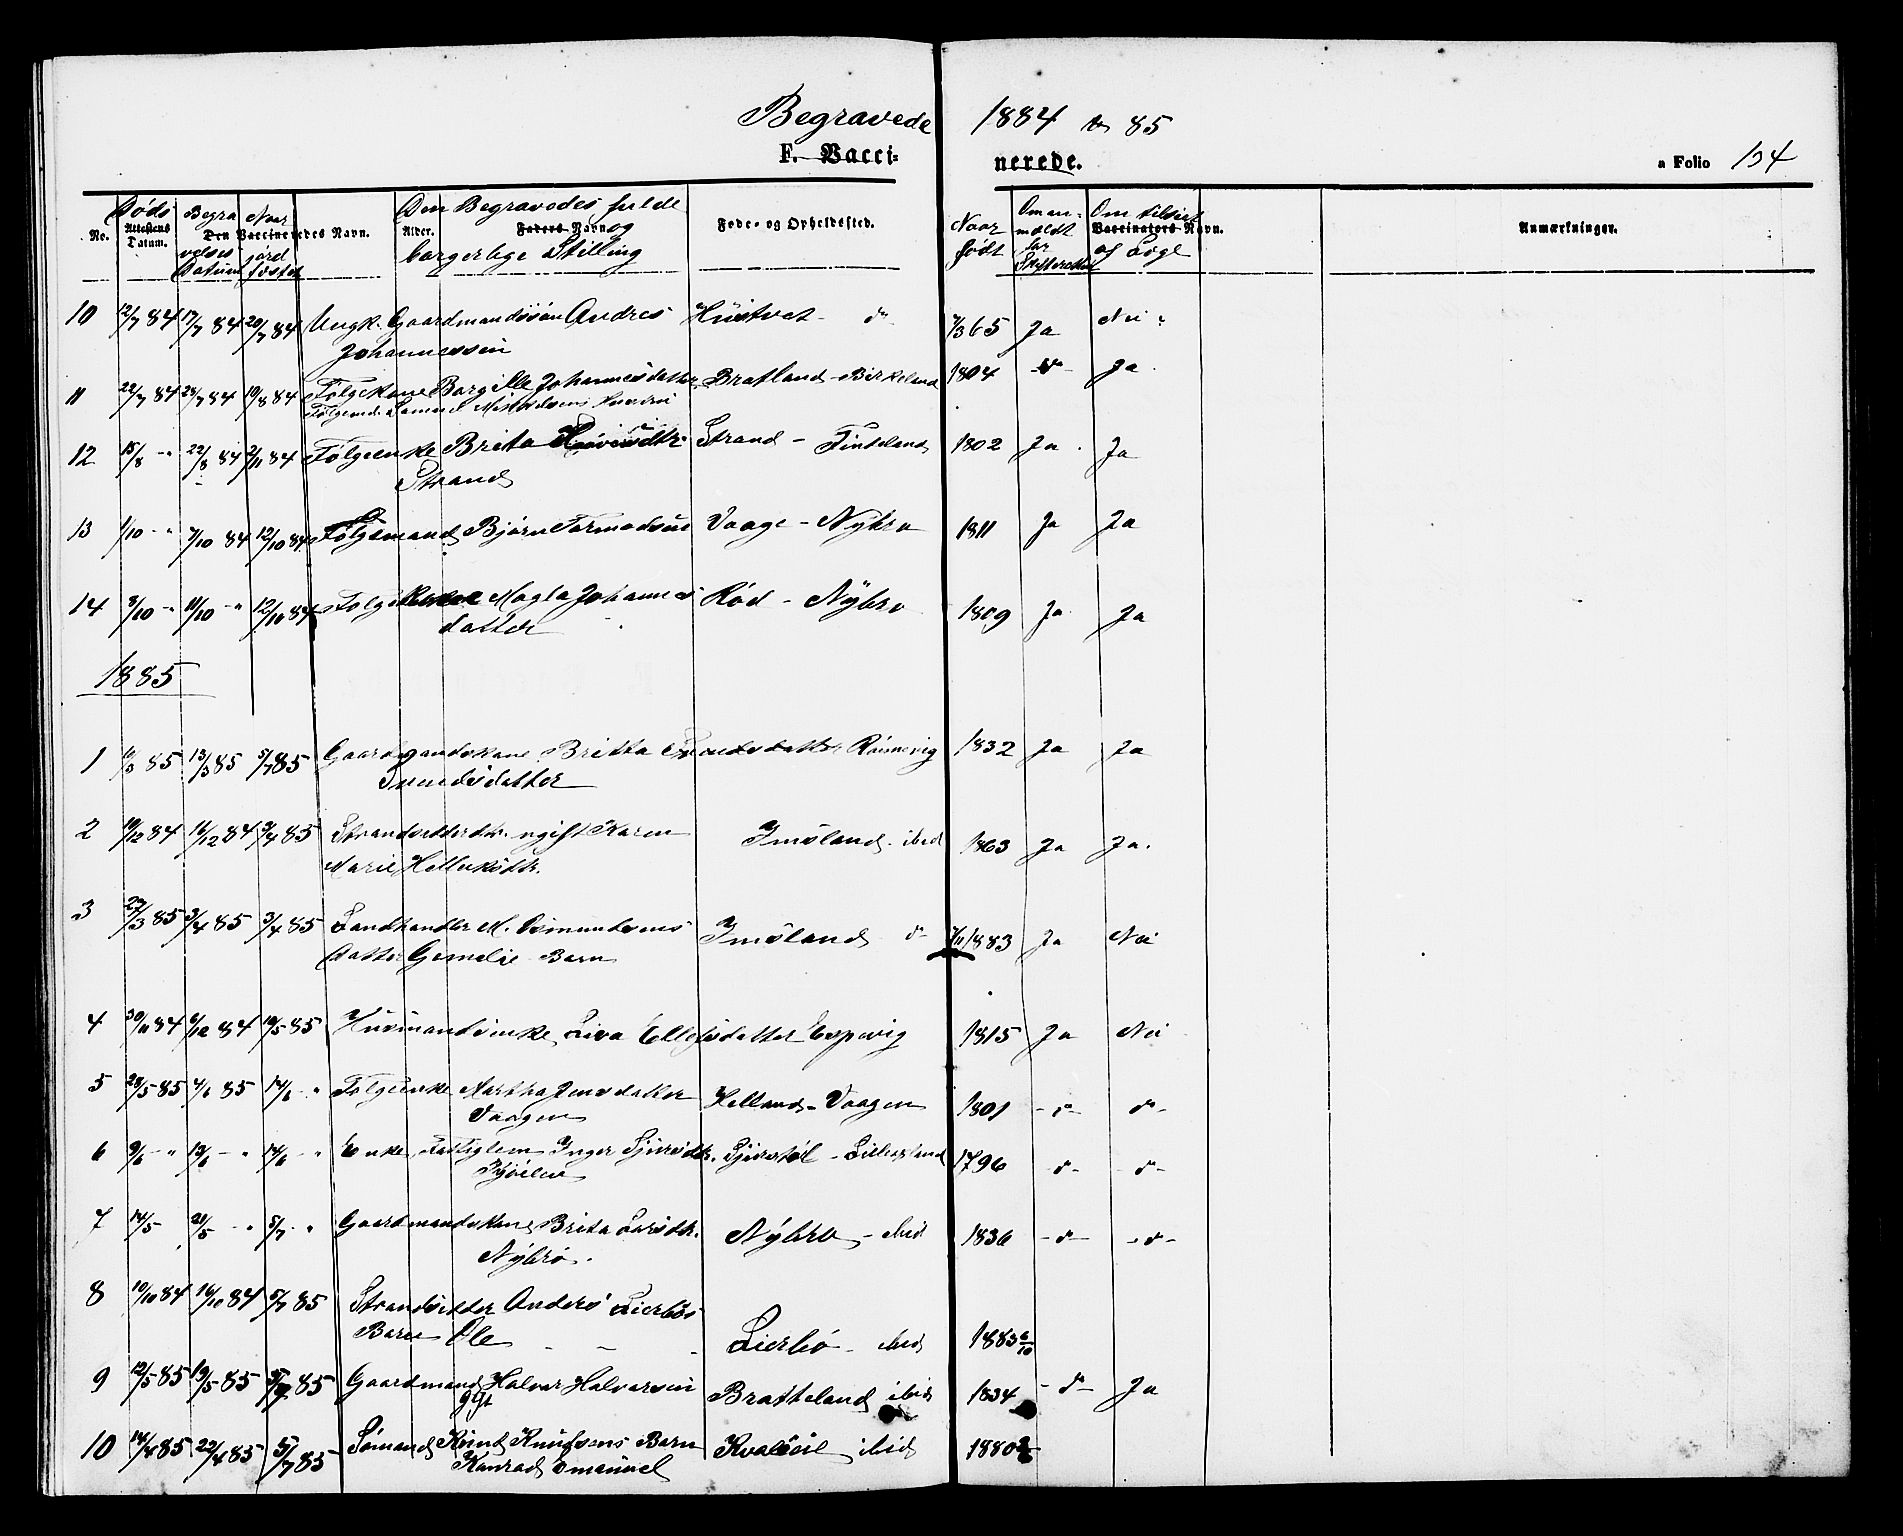 Begravede 1884 85
F. Vacci- nerede.
a Folio 134
No. Døds Attestens Datum. Begra velses Datum Naar jord fæstet Den Vaccineredes Navn. Alder. Den Begravedes fulde Faders Navn og borgerlige Stilling Føde- og Opholdssted. Naar født Om an- meldt for Skifteretten Om tilseet Vaccinators Navn. af Læge Anmærkninger.
10 12/7 84 17/7 84 20/7 84 Ungk. Gaardmandssøn Andreas Hustvet do 7/3 65 Ja Nei
Johannessen
11 22/7 84 28/7 84 10/8 84 Følgekone Borgille Johannesdatter Bratland - Birkeland 1804 do Ja
Følgemd. Samuel
12 15/8 - " 22/8 84 2/11 84 Følgeenke Brita Strand - Finteland 1802 Ja Ja
Strand
13 1/10 - " 7/10 84 12/10 84 Følgemand Bjørn Tormodsen Vaage - Nybrø 1811 Ja Ja
14 3/10 - " 11/10 - " 12/10 84 Følgekone Magla Johannes Rød - Nybrø 1809 Ja Ja
datter
1885
1 85 13/3 85 5/7 85 Gaardmandskone Britta Rømmevig 1832 Ja Ja
datter
2 10/12 84 16/12 84 3/4 85 Strandsidderdtr. ugift Karen Imsland - ibid 1863 Ja Ja.
Marie
3 27/3 85 3/4 85 3/4 85 Landhandler M. Osmundsens Imsland do 1883 Ja Nei
datter Gemelie Barn
4 30/11 84 6/12 84 10/5 85 Husmandsenke Siva Ellefsdatter Espevig 1815 Ja Nei
5 28/5 85 4/6 85 14/6 - " Følgeenke Martha Jensdatter Helland - Vaagen 1801 - do - do -
Vaagen
6 9/6 - " 13/6 - " 14/6 - " Enke Fattiglem Inger 1796 - do - - do -
7 14/5 21/5 - " 5/7 - " Gaardmandskone Brita Larsdtr. Nybrø - ibid 1836 - do - - do -
Nybrø.
8 10/10 84 16/10 84 5/7 85 Strandsidder Anders Lierbøs
Barn Ole - - - Lierbø - ibid 1883 6/10
9 12/5 85 19/5 85 5/7 85 Gaardmand Halvor Halvorsen Bratteland ibid 1834 - do - Ja
gift
10 14/4 85 22/4 85 5/7 85 Sømand Knud Knudsens Barn Kvaløen ibid 1880
Konrad Emanuel